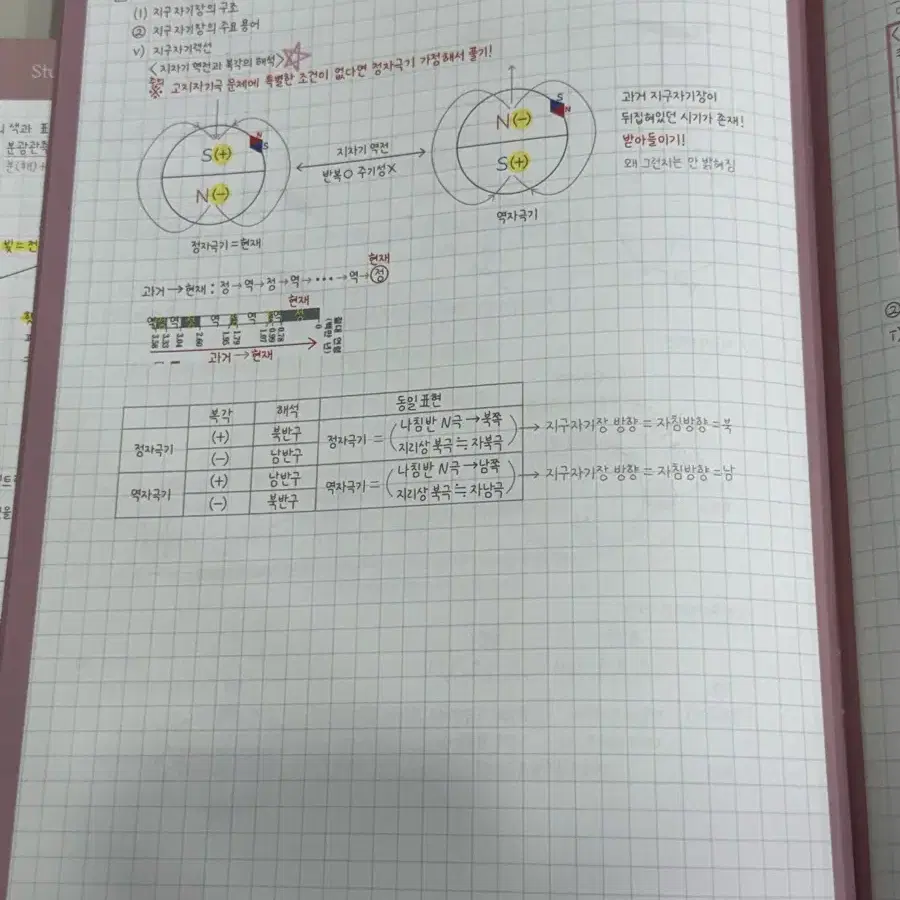 (1) 지구자기장의 구조
② 지구자기장의 주요 용어
v) 지구자기력선
<지자기 역전과 복각의 해석>
주의
※ 고지자기극 문제에 특별한 조건이 없다면 정자극기 가정해서 풀기!
N
S
S(+)
N(-)
정자극기=현재
지자기 역전
반복O 주기성X
S
N
N(-)
S(+)
역자극기
과거 지구자기장이
뒤집혀있던 시기가 존재!
받아들이기!
왜 그런지는 안 밝혀짐
현재
과거→현재: 정→역→정→역→···→역→정
현재
역 역 역 역 정
3.58 3.33 3.04 2.60 1.95 1.79 1.07 0.99 0.78 0
절대 연령
(백만 년)
과거→현재
복각 해석 동일표현
정자극기 (+) 북반구 정자극기= (나침반 N극→북쪽
(-) 남반구 지리상 북극≒자북극) → 지구자기장 방향=자침방향=북
역자극기 (+) 남반구 역자극기= (나침반 N극→남쪽
(-) 북반구 지리상 북극≒자남극) → 지구자기장 방향=자침방향=남
Stu
의 색과 표
분광관측
빛=전
②